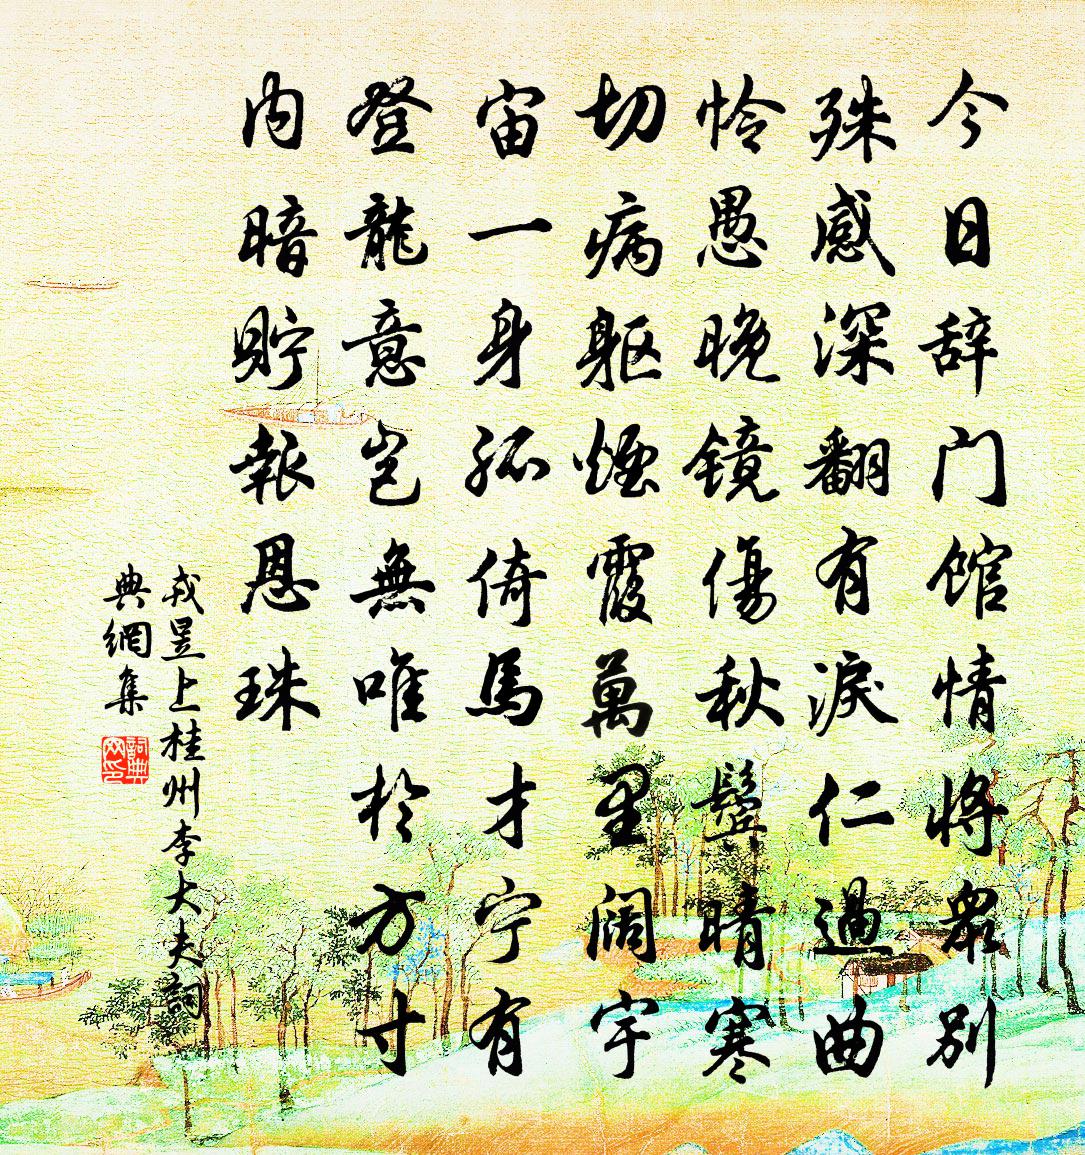 今日辞门馆情将眾别
殊感深翻有淚仁過曲
怜愚晚镜傷秋鬓晴寒
切病躯煙霞萬里阔宇
宙一身孤倚馬才宁有
登龍意岂無唯於方寸
内暗贮報恩珠
戎昱上桂州李大夫詞
典網集
詞典网印